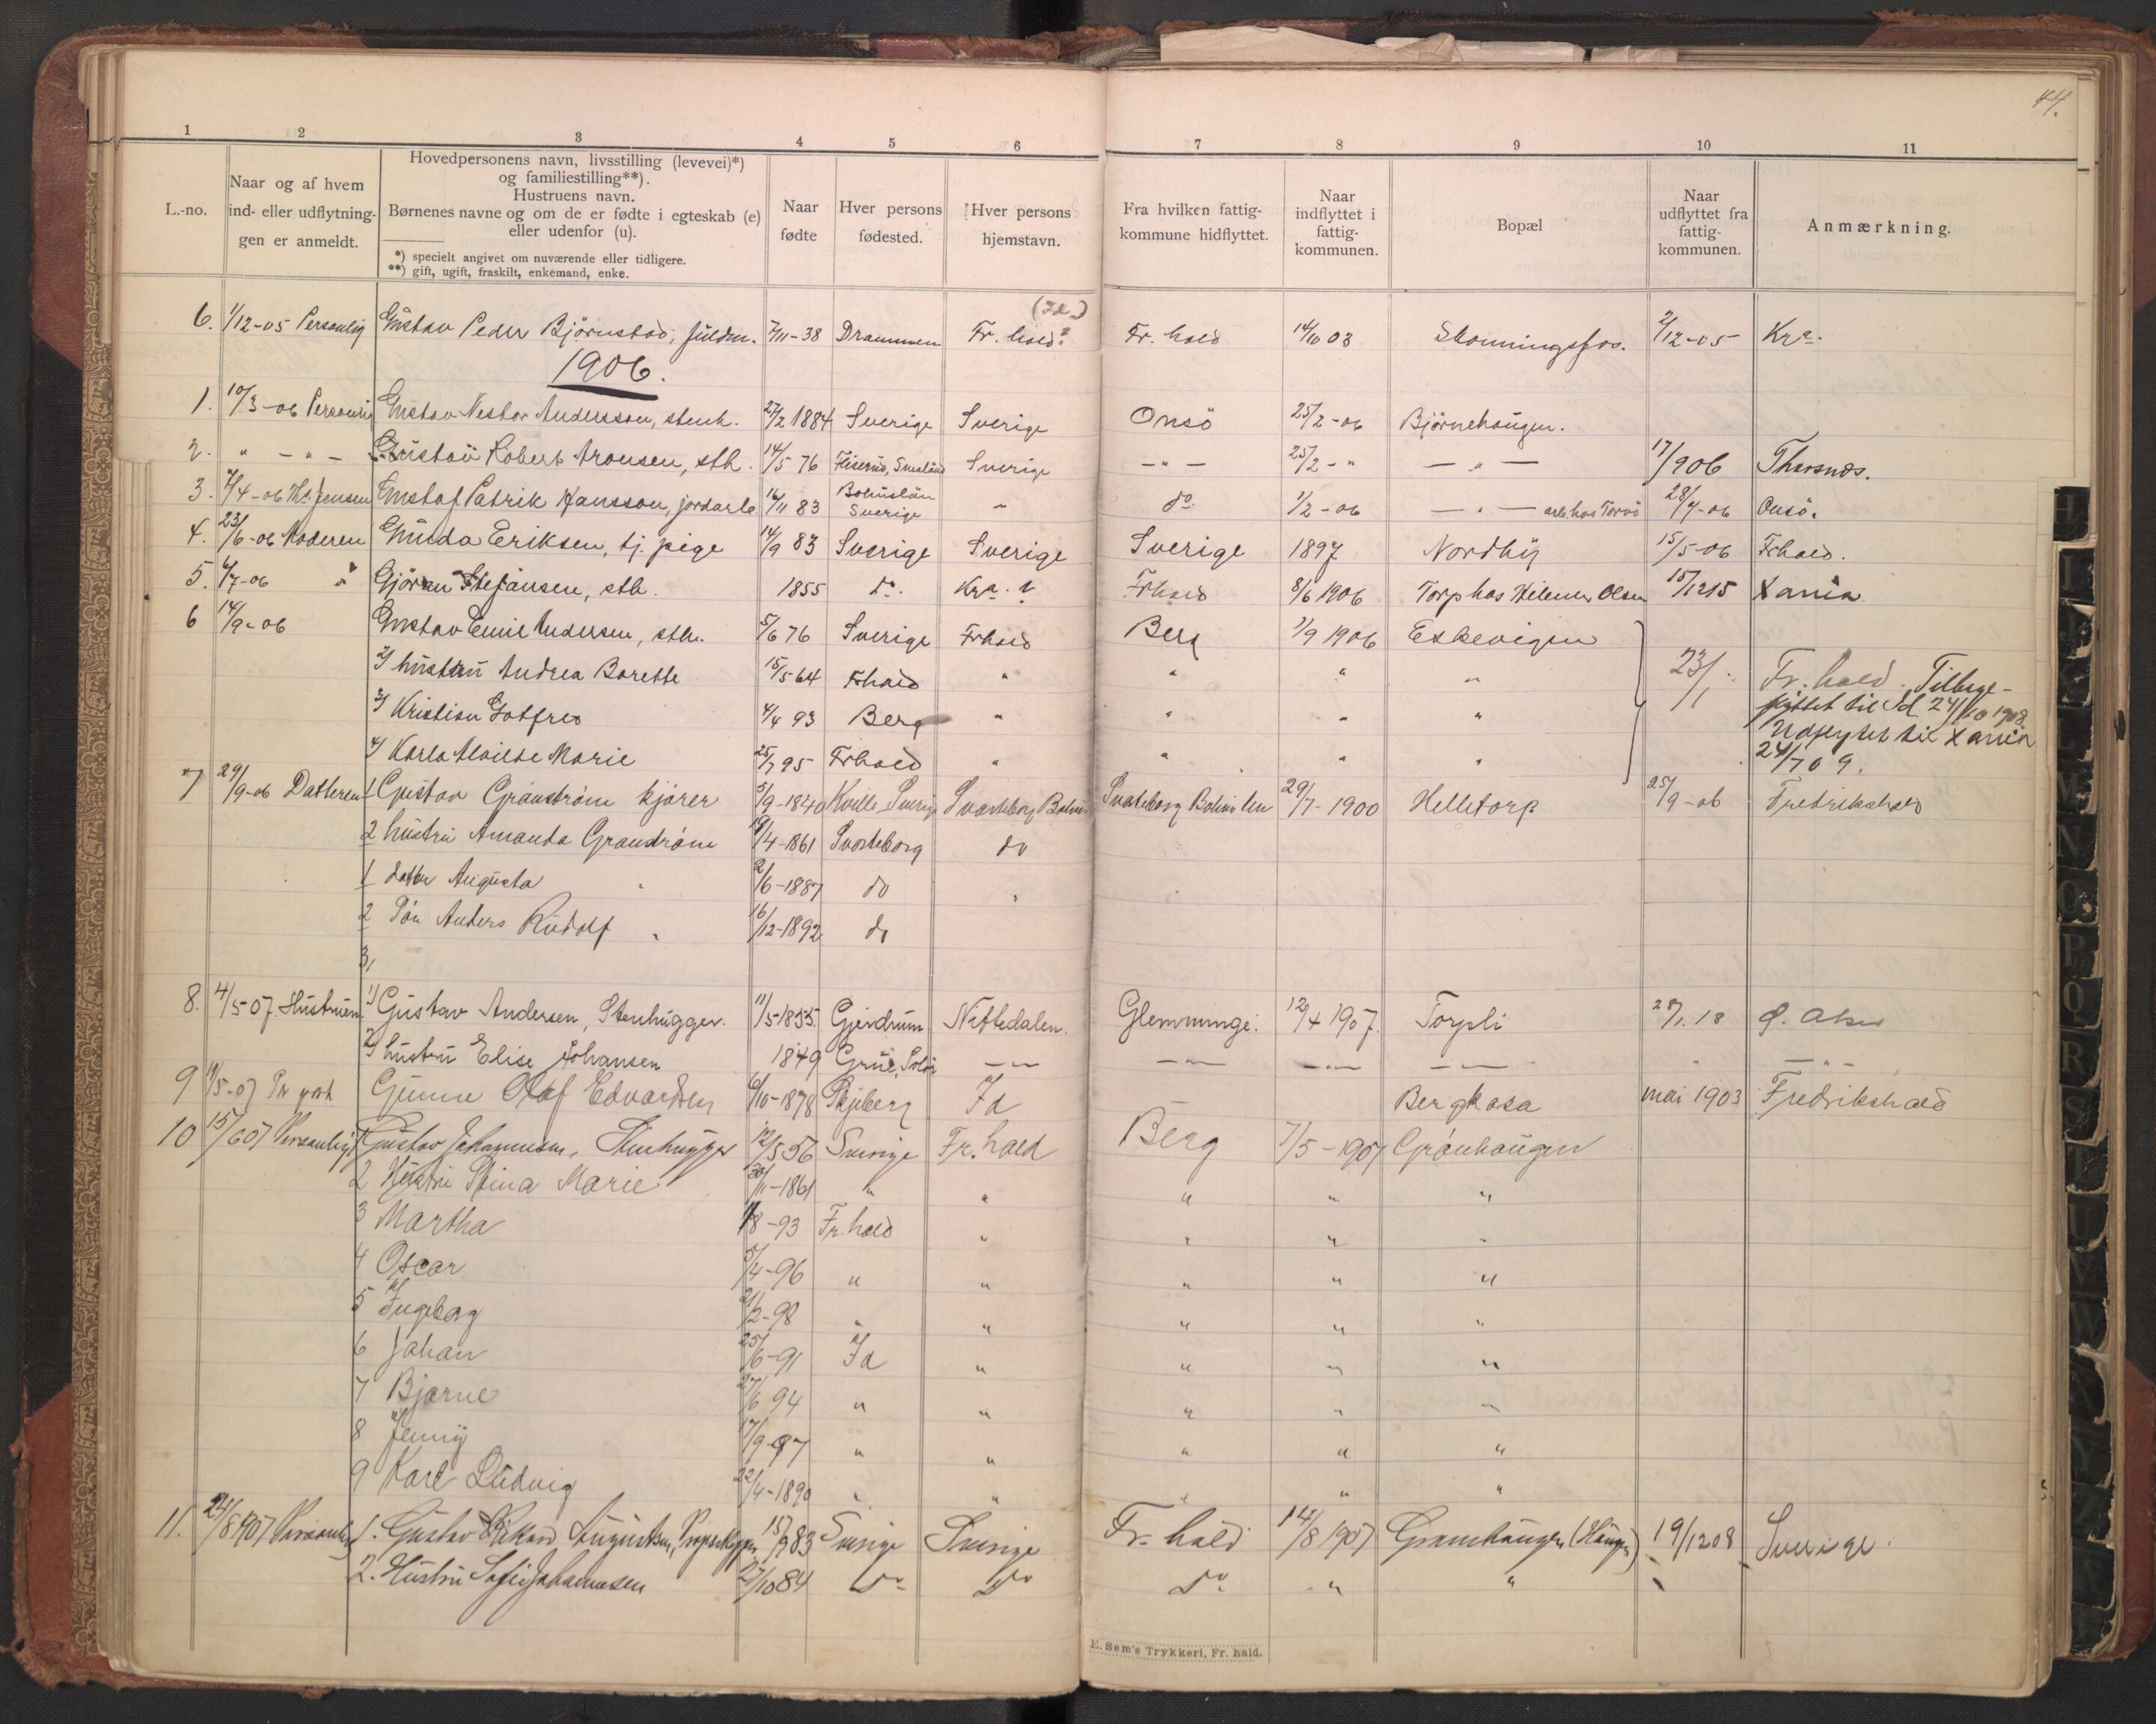 44.
1 2 3 4 5 6 7 8 9 10 11
L.-no.
Naar og af hvem
ind- eller udflytnin-
gen er anmeldt.
Hovedpersonens navn, livsstilling (levevei)*)
og familiestilling**).
Hustruens navn.
Børnenes navne og om de er fødte i egteskab (e)
eller udenfor (u).
*) specielt angivet om nuværende eller tidligere.
**) gift, ugift, fraskilt, enkemand, enke.
Naar
fødte
Hver persons
fødested.
Hver persons
hjemstavn.
Fra hvilken fattig-
kommune hidflyttet.
Naar
indflyttet i
fattig-
kommunen.
Bopæl
Naar
udflyttet fra
fattig-
kommunen.
Anmærkning.
(Id.)
6. 1/12-05 Personlig Gustav Peder Bjørnstad, fuldm. 7/11-38 Drammen Fr.hald? Fr.hald 14/10 03 Skonningsfos. 2/12-05 Kra.
1906.
1. 10/3-06 Personlig Gustav Nestor Andersson, stenh. 27/2 1884 Sverige Sverige Onsö 25/2-06 Bjørnehaugen.
2. " - " - Gustav Robert Aronsen, sth. 14/5 76 Fliserud, Småland Sverige - " - 25/2 - " - " - 17/9 06 Thorsnes.
3. 7/4-06 Jensen Gustaf Patrik Hansson, jordarb. 16/11 83 Bohuslän Sverige " do 1/2-06 - " - arb. hos Torvö 28/4-06 Onsö.
4. 23/6-06 Moderen Gunda Eriksen, tj. pige 14/9 83 Sverige Sverige Sverige 1897 Nordby 15/5-06 Frhald.
5. 6/7-06 " Gjöran Stefansen, sth. 1855 Do. Kra. ? Frhald 8/6 1906 Torp hos Helmer Olsen 15/12 15 Xania
6 14/9-06 Gustav Emil Andersen, sth. 5/6 76 Sverige Frhald Berg 1/9 1906 Eskevigen
2) hustru Andrea Borette 15/5 64 Frhald " " " " 23/1 Fr.hald. Tilbage-
3) Kristian Gotfred 4/4 93 Berg " " " " flyttet til Id 24/10 1908.
Udflyttet til Xania
4) Karla Alvilde Marie 25/7 95 Frhald " " " " 24/7 09.
7 29/9-06 Datteren 1 Gustav Granström kjører 5/9-1840 Kville Sverige Svarteborg Bohus Svarteborg Bohuslen 29/7-1900 Helletorp 25/9-06 Fredrikshald
2 hustru Amanda Granström 19/4-1861 Svarteborg do
1 datter Augusta " 2/6-1887 do "
2 Sön Anders Rudolf " 16/12-1892 do
3,
8. 4/5-07 Hustruen 1) Gustav Andersen, Stenhugger. 11/5-1855. Gjerdrum Nittedalen. Glemminge. 12/4 1907. Torpli 28/1.18 Ø. Aker
2) hustru Elise Johansen 1849 Grue, Solör - " - - " - - " - - " - " - " -
9 14/5-07 Pr post Gunne Olaf Edvardsen 6/10-1878 Skjeberg Id Bergkasa mai 1903 Fredrikshald
10 15/6 07 Personlig 1 Gustav Johannesen, Stenhugger 12/5 56 Sverige Fr.hald Berg 7/5-1907 Grönhaugen
2 Hustru Stina Marie 30/11-1861 " " " " "
3 Martha 1/8-93 Fr.hald " " " "
4 Oscar 5/4-96 " " " " "
5 Ingeborg 21/2-98 " " " " "
6 Johan 25/6-91 Id " " " "
7 Bjarne 27/6 94 " " " " "
8 Jenny 17/9-97 " " " " "
9 Karl Ludvig 22/4-1890 " " " " "
11. 24/8 1907 Personlig 1. Gustav Rikard Augustsen, 15/9 83 Sverige Sverige Fr.hald 14/8 1907 Grønhaugen (Haugen) 19/12 08 Sverige.
2. Hustru Sofie Johannesen 27/10 84 Do Do Do " "
E. Sem's Trykkeri, Fr.hald.
H
L
M
N
O
P
Q
R
S
T
U
V
W
X
Y
Z